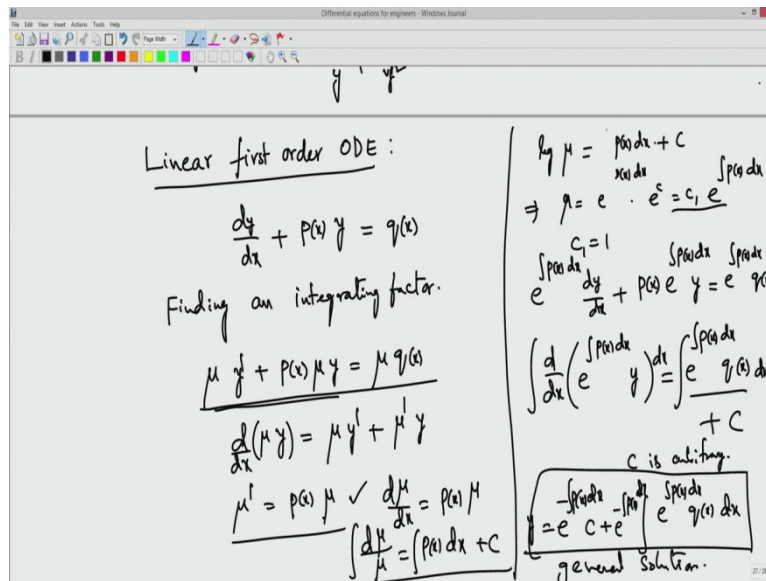 Differential equations for engineers - Windows Journal
File Edit View Insert Actions Tools Help
Page Width
B I
Linear first order ODE :
dy/dx + p(x) y = q(x)
Finding an integrating factor.
μ y' + p(x) μ y = μ q(x)
d/dx (μ y) = μ y' + μ' y
μ' = p(x) μ ✓ dμ/dx = p(x) μ
∫ dμ/μ = ∫ p(x) dx + C
log μ = p(x) dx + C
⇒ μ = e^{p(x) dx} · e^c = c₁ e^{∫p(x) dx}
c₁ = 1
e^{∫p(x) dx} dy/dx + p(x) e^{∫p(x) dx} y = e^{∫p(x) dx} q(x)
∫ d/dx ( e^{∫p(x) dx} y ) dx = ∫ e^{∫p(x) dx} q(x) dx
+ C
C is arbitrary.
y = e^{-∫p(x) dx} C + e^{-∫p(x) dx} ∫ e^{∫p(x) dx} q(x) dx
general solution.